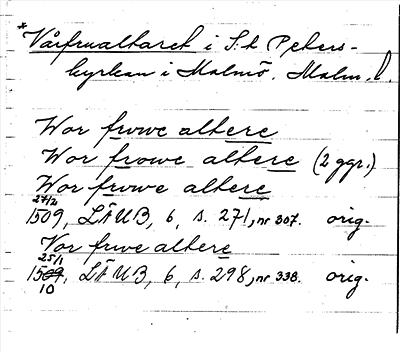 *Vårfrualtaret i S:t Peters-
kyrkan i Malmö. Malm. l.
Wor frowe altere
Wor frowe altere (2 ggr.)
Wor frowe altere
27/2
1509, LÄUB, 6, s. 271, nr 307. orig.
Vor frwe altere
25/1
1509, LÄUB, 6, s. 298, nr 338. orig.
10